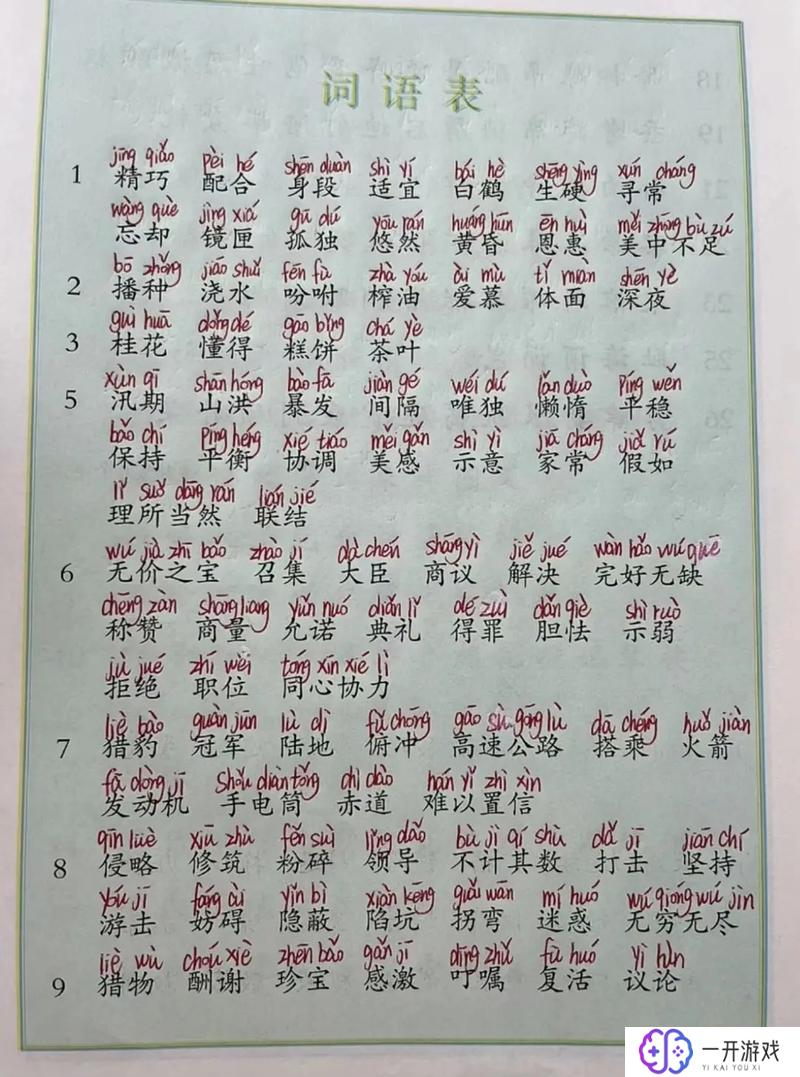 词语表
jīng qiǎo pèi hé shēn duàn shì yí bái hè shēng yìng xún cháng
1 精巧 配合 身段 适宜 白鹤 生硬 寻常
wàng què jìng xiá gū dú yōu rán huáng hūn ēn huì měi zhōng bù zú
忘却 镜匣 孤独 悠然 黄昏 恩惠 美中不足
bō zhǒng jiāo shuǐ fēn fù zhà yóu ài mù tǐ miàn shēn yè
2 播种 浇水 吩咐 榨油 爱慕 体面 深夜
guì huā dǒng dé gāo bǐng chá yè
3 桂花 懂得 糕饼 茶叶
xùn qī shān hóng bào fā jiàn gé wéi dú lǎn duò píng wěn
5 汛期 山洪 暴发 间隔 唯独 懒惰 平稳
bǎo chí píng héng xié tiáo měi gǎn shì yì jiā cháng jiǎ rú
保持 平衡 协调 美感 示意 家常 假如
lǐ suǒ dāng rán lián jié
理所当然 联结
wú jià zhī bǎo zhào jí dà chén shāng yì jiě jué wán hǎo wú quē
6 无价之宝 召集 大臣 商议 解决 完好无缺
chēng zàn shāng liang yǔn nuó diǎn lǐ dé zuì dǎn qiè shì ruò
称赞 商量 允诺 典礼 得罪 胆怯 示弱
jù jué zhí wèi tóng xīn xié lì
拒绝 职位 同心协力
liè bào guàn jūn lù dì fǔ chōng gāo sù gōng lù dā chéng huǒ jiàn
7 猎豹 冠军 陆地 俯冲 高速公路 搭乘 火箭
fā dòng jī shǒu diàn tǒng chì dào nán yǐ zhì xìn
发动机 手电筒 赤道 难以置信
qīn lüè xiū zhù fěn suì lǐng dǎo bù jì qí shù dǎ jī jiān chí
8 侵略 修筑 粉碎 领导 不计其数 打击 坚持
yóu jī fáng ài yǐn bì xiàn kēng guǎi wān mí huó wú qióng wú jìn
游击 妨碍 隐蔽 陷坑 拐弯 迷惑 无穷无尽
liè wù chóu xiè zhēn bǎo gǎn jī dīng zhǔ fù huó yì lùn
9 猎物 酬谢 珍宝 感激 叮嘱 复活 议论
一开游戏
YI KAI YOU XI